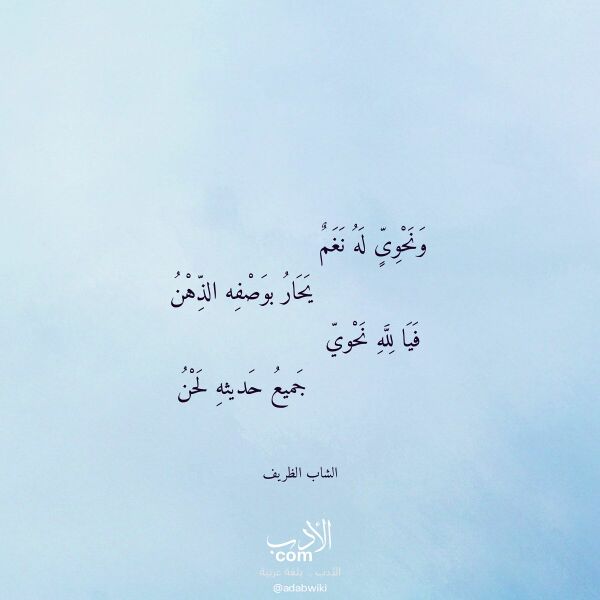 وَنَحْوِيٍّ لَهُ نَغَمٌ
يَحَارُ بوَصْفِه الذِّهْنُ
فَيَا لِلَّهِ نَحْويّ
جَميعُ حَديثهِ لَحْنُ
الشاب الظريف
الأدب
com
الأدب .. بلغة عربية
@adabwiki